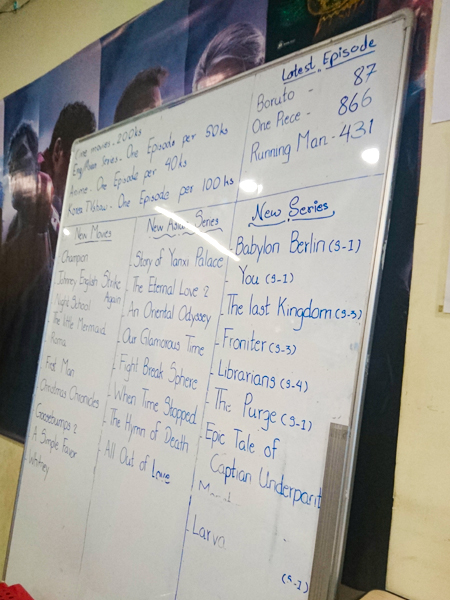 Time movies - 200ks
Eng/Asian Series - One Episode per 50ks
Anime - One Episode per 40ks
Korea TVshow - One Episode per 100 ks
Latest Episode
Boruto - 87
One Piece - 866
Running Man - 431
New Movies
Champion
Johnny English Strike
Again
Night School
The little Mermaid
First Man
Christmas Chronicles
Goosebumps 2
A Simple Favor
Whitney
New Asian Series
- Story of Yanxi Palace
- The Eternal Love 2
- An Oriental Odyssey
- Our Glamorous Time
- Fight Break Sphere
- When Time Stopped
- The Hymn of Death
- All Out of Love
New Series
- Babylon Berlin (S-1)
- You (S-1)
- The last Kingdom (S-3)
- Froniter (S-3)
- Librarians (S-4)
- The Purge (S-1)
- Epic Tale of
Captian Underpant
- Larva
(S-1)